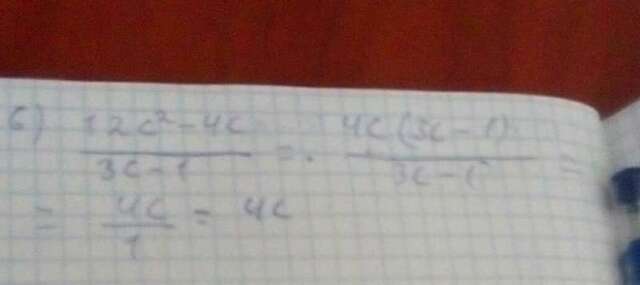 б) (12c²-4c)/(3c-1) = (4c(3c-1))/(3c-1) =
= 4c/1 = 4c